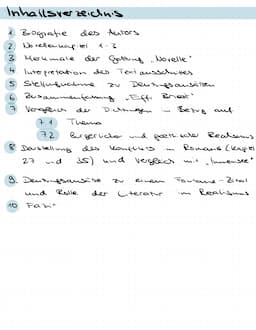 Inhaltsverzeichnis
1. Biografie des Autors
2. Novellenkapitel 1-3
3 Merkmale der Gattung "Novelle"
4 Interpretation des Textausschnittes
5 Stellungnahme zu Deutungsansätzen
6 Zusammenfassung "Effi Briest"
7 Vergleich der Dichtungen in Bezug auf
7.1 Thema
7.2 Bürgerlicher und poetischer Realismus
8 Darstellung des Konflikts im Romans (Kapitel
27 und 35) und Vergleich mit "Immensee"
9. Deutungsansätze zu einem Fontane-Zitat
und Rolle der Literatur im Realismus
10 Fazit